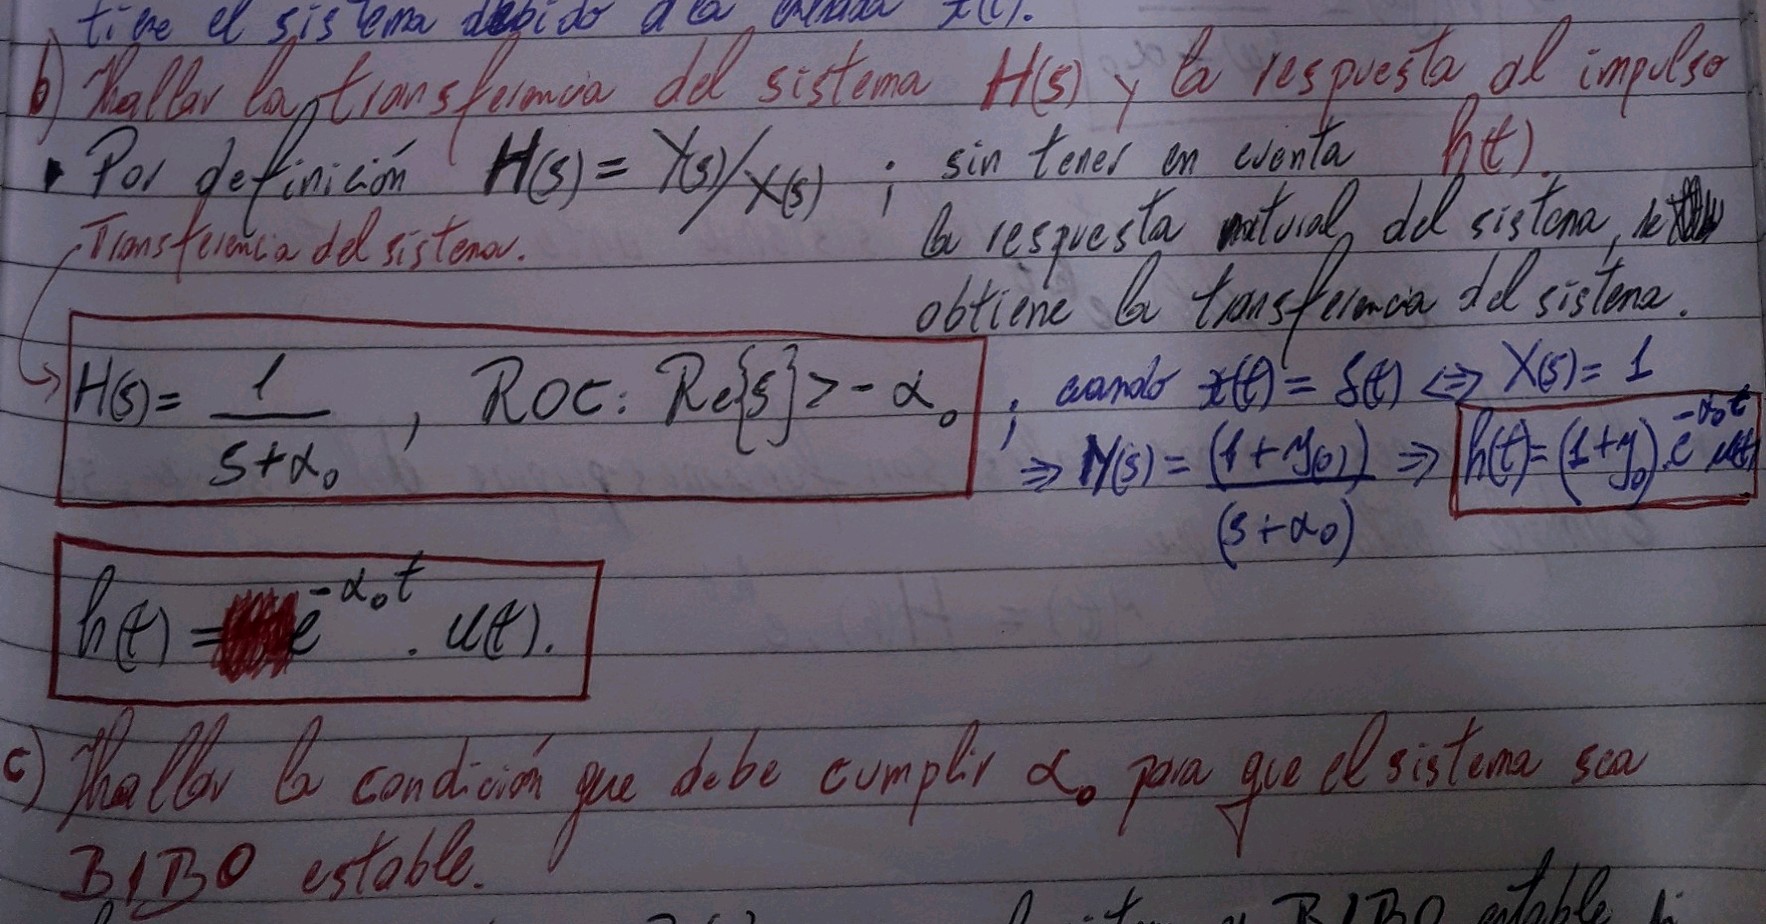 tiene el sistema debido a la entrada x(t).
b) Hallar la transferencia del sistema H(s) y la respuesta al impulso
h(t).
• Por definición H(s) = Y(s)/X(s) ; sin tener en cuenta
la respuesta natural del sistema, se
obtiene la transferencia del sistema.
Transferencia del sistema.
H(s) = 1/(s+α₀) , ROC: Re{s} > -α₀ ; cuando x(t) = δ(t) <=> X(s) = 1
⇒ Y(s) = (1+y(0))/(s+α₀) ⇒ h(t) = (1+y₀).e^{-α₀t} u(t)
h(t) = e^{-α₀t} . u(t).
c) Hallar la condición que debe cumplir α₀ para que el sistema sea
BIBO estable.
BIBO estable